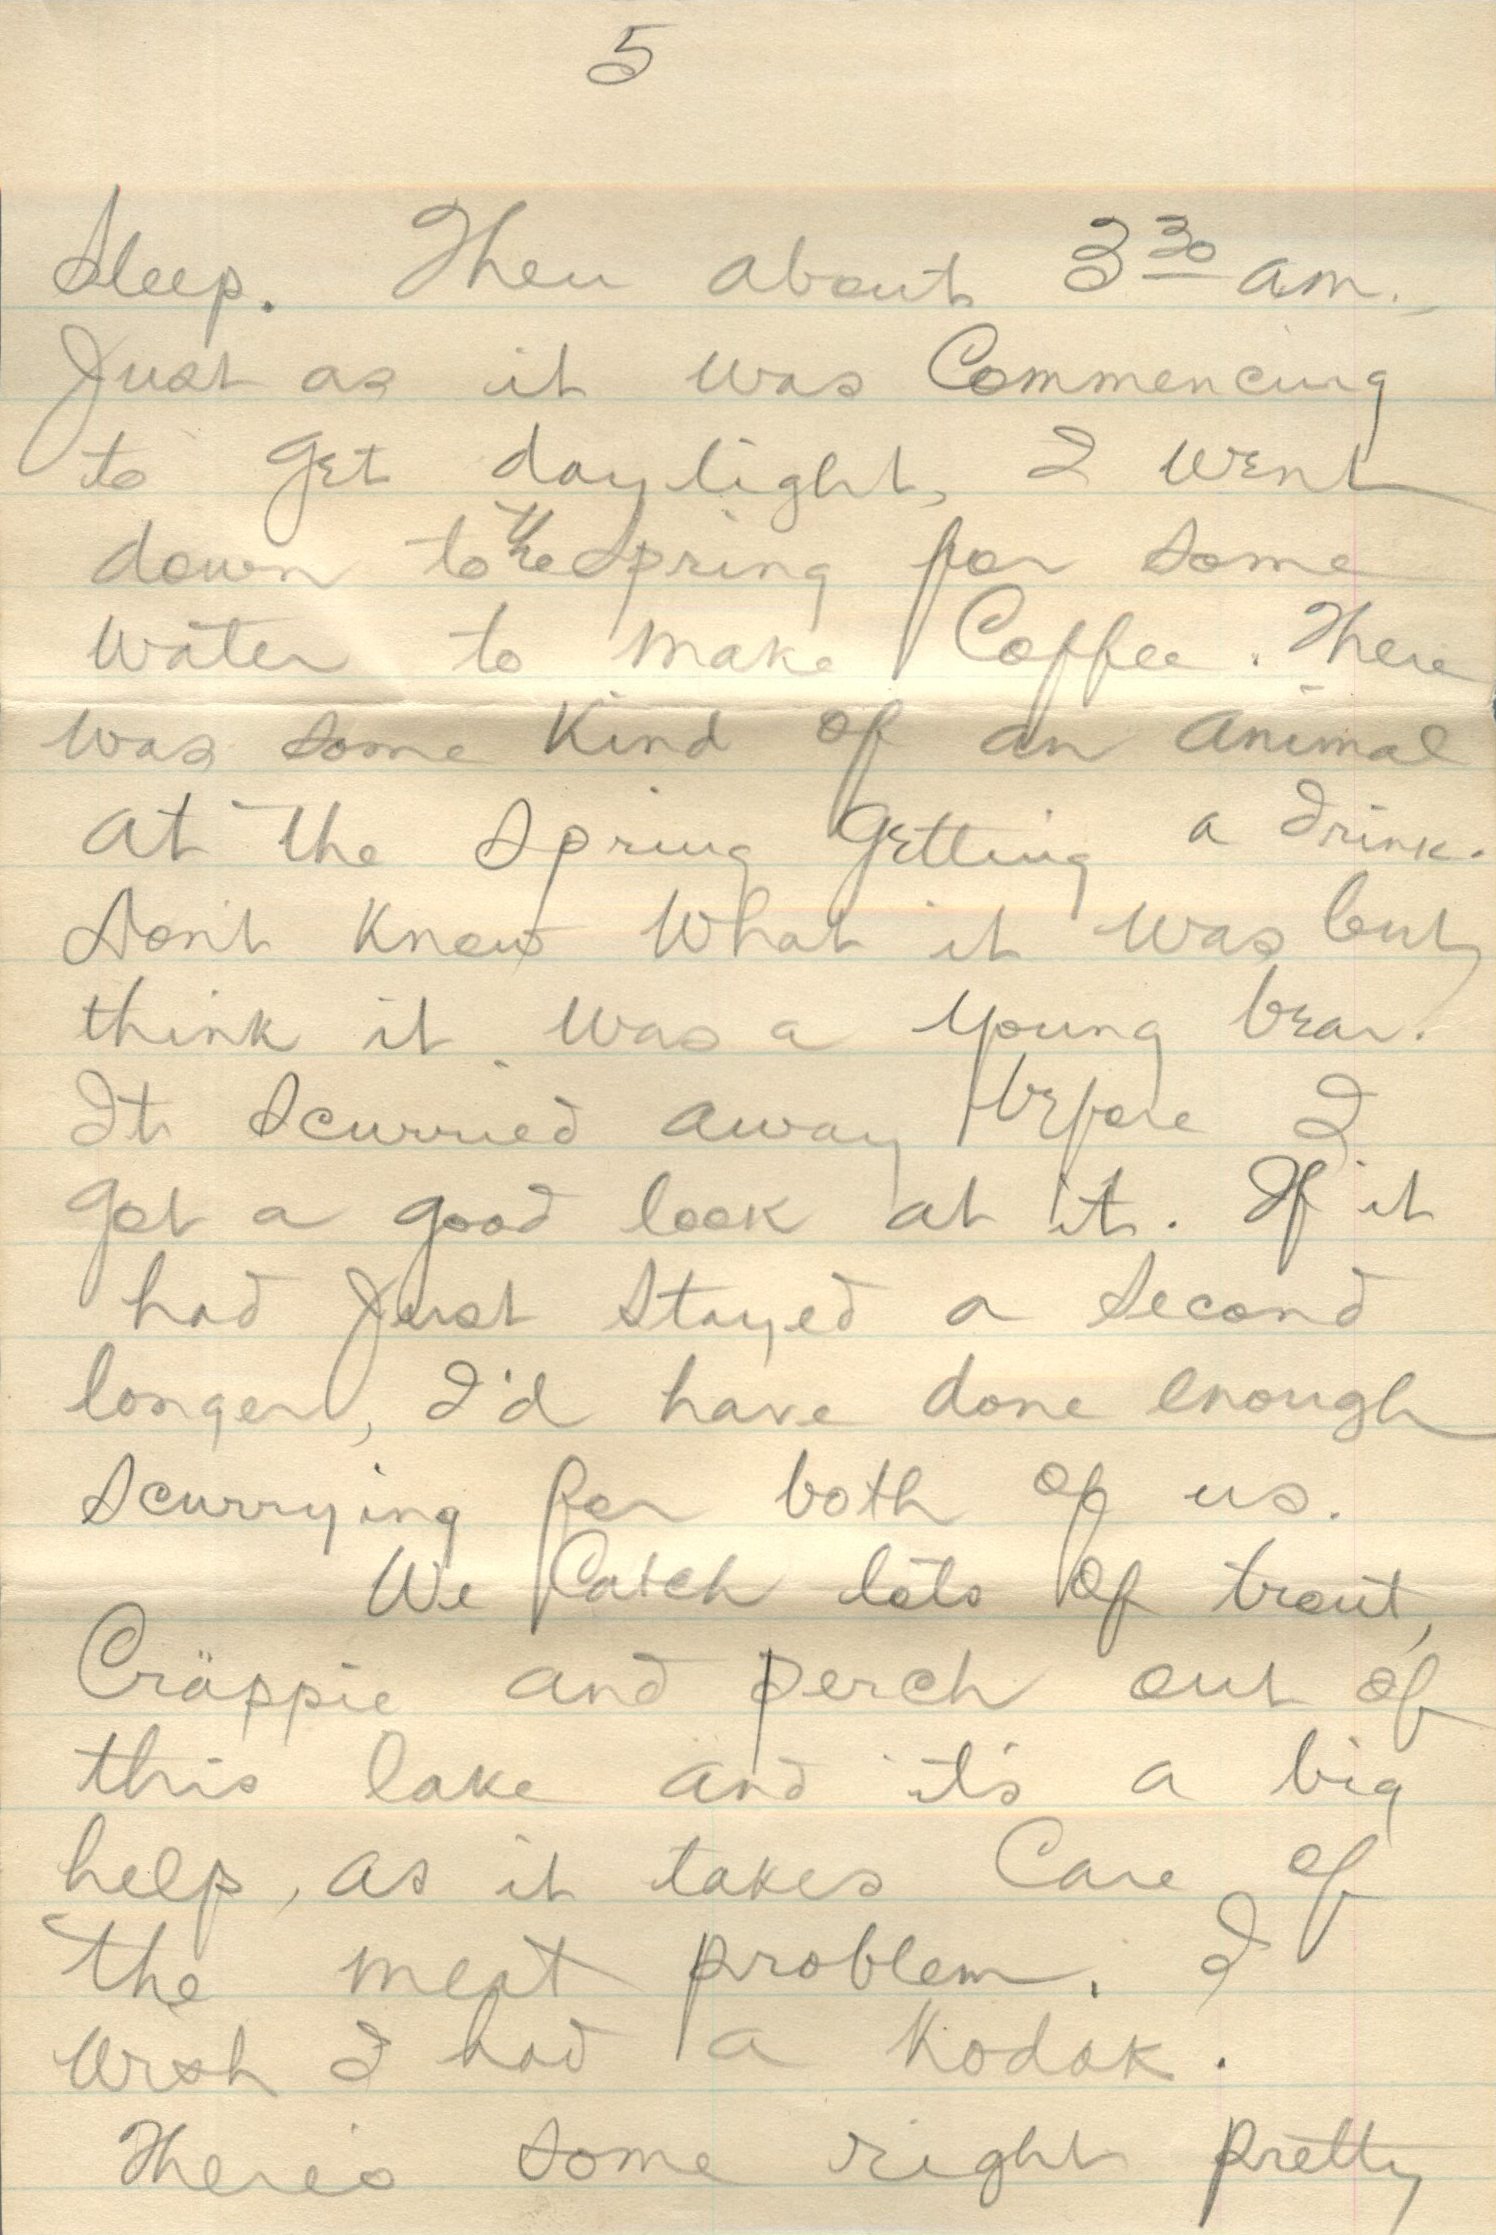 5
Sleep. Then about 3 30 am.,
Just as it was Commencing
to get daylight, I went
down to the Spring for some
water to make Coffee. There
was some Kind of an animal
at the Spring getting a drink.
Don't Know What it was but
think it was a young bear.
It scurried away before I
got a good look at it. If it
had just stayed a second
longer, I'd have done enough
scurrying for both of us.
We Catch lots of trout,
Cräppie and perch out of
this lake and it's a big
help, as it takes Care of
the meat problem. I
wish I had a Kodak.
There's some right pretty